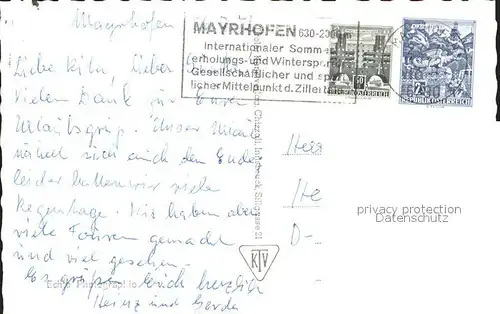 Mayrhofen
MAYRHOFEN 630-2
Internationaler Somm
erholungs- und Winterspor
Gesellschaftlicher und sp
licher Mittelpunkt d. Zillert
REPUBLIK ÖSTERREICH
REPUBLIK ÖSTERREICH
Liebe Rita, lieber
vielen Dank für Euren
Urlaubsgruß. Unser Urlaub
nähert sich auch dem Ende
leider hatten wir viele
Regentage. Wir haben aber
viele Touren gemacht
und viel gesehen.
Es grüßen Euch herzlich
Heinz und Gerda
Echte Photographie
Chizzali, Innsbruck, Sillgasse 21
KTV
Herr
D-
privacy protection
Datenschutz